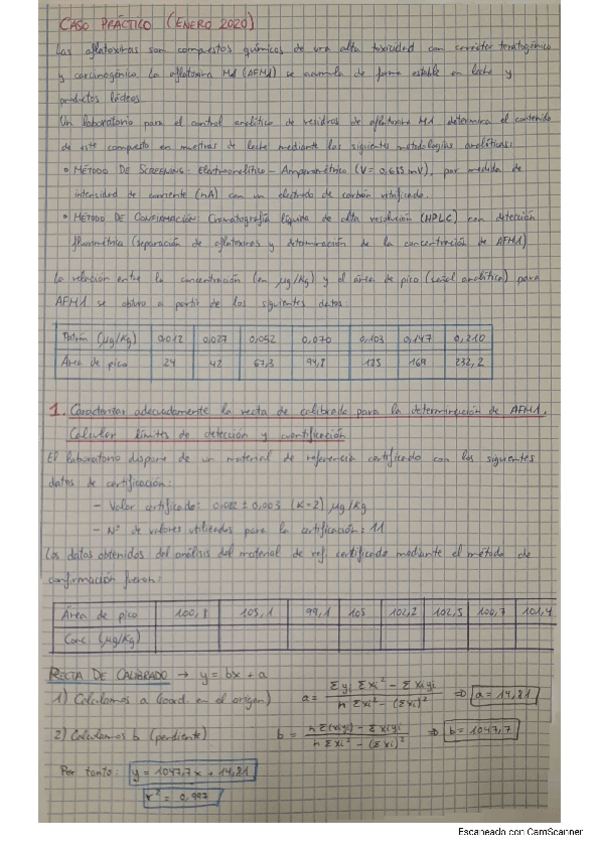 CASO PRÁCTICO (ENERO 2020)
Las aflatoxinas son compuestos químicos de una alta toxicidad con carácter teratogénico
y carcinogénico. La aflatoxina M1 (AFM1) se acumula de forma estable en leche y
productos lácteos.
Un laboratorio para el control analítico de residuos de aflatoxina M1 determina el contenido
de este compuesto en muestras de leche mediante las siguientes metodologías analíticas:
• MÉTODO DE SCREENING: Electroanalítico - Amperométrico (V = 0,685 mV), por medida de
intensidad de corriente (nA) con un electrodo de carbón vitrificado.
• MÉTODO DE CONFIRMACIÓN: Cromatografía líquida de alta resolución (HPLC) con detección
fluorimétrica (separación de aflatoxinas y determinación de la concentración de AFM1)
La relación entre la concentración (en µg/kg) y el área de pico (señal analítica) para
AFM1 se obtuvo a partir de los siguientes datos:
Patrón (µg/kg) 0,012 0,027 0,052 0,070 0,103 0,147 0,210
Área de pico 24 42 67,3 94,8 125 169 232,2
1. Caracterizar adecuadamente la recta de calibrado para la determinación de AFM1.
Calcular límites de detección y cuantificación
El laboratorio dispone de un material de referencia certificado con los siguientes
datos de certificación:
- Valor certificado: 0,082 ± 0,003 (K=2) µg/kg
- Nº de valores utilizados para la certificación: 11
Los datos obtenidos del análisis del material de ref. certificado mediante el método de
confirmación fueron:
Área de pico 100,8 105,1 99,1 105 102,2 102,5 100,7 101,4
Conc. (µg/kg)
RECTA DE CALIBRADO → y = bx + a
1) Calculamos a (coord. en el origen) a = Σyi Σxi² - Σxiyi / n Σxi² - (Σxi)² ⇒ a = 14,81
2) Calculamos b (pendiente) b = nΣ(xiyi) - Σxiyi / n Σxi² - (Σxi)² ⇒ b = 1047,7
Por tanto: y = 1047,7x + 14,81
r² = 0,997
Escaneado con CamScanner